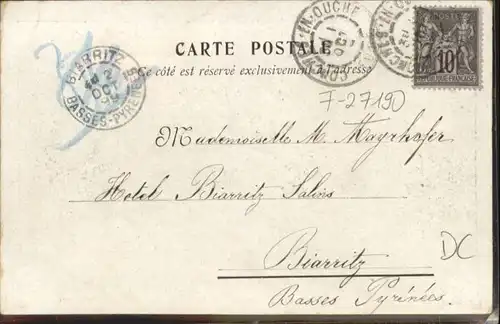 CARTE POSTALE
Ce côté est réservé exclusivement à l'adresse
BIARRITZ
2
OCT
BASSES-PYRENEES
7-27190
POSTE
10
REPUBLIQUE FRANÇAISE
Mademoiselle M. Mayrhofer
Hotel Biarritz Salins
DC
Biarritz
Basses Pyrénées.